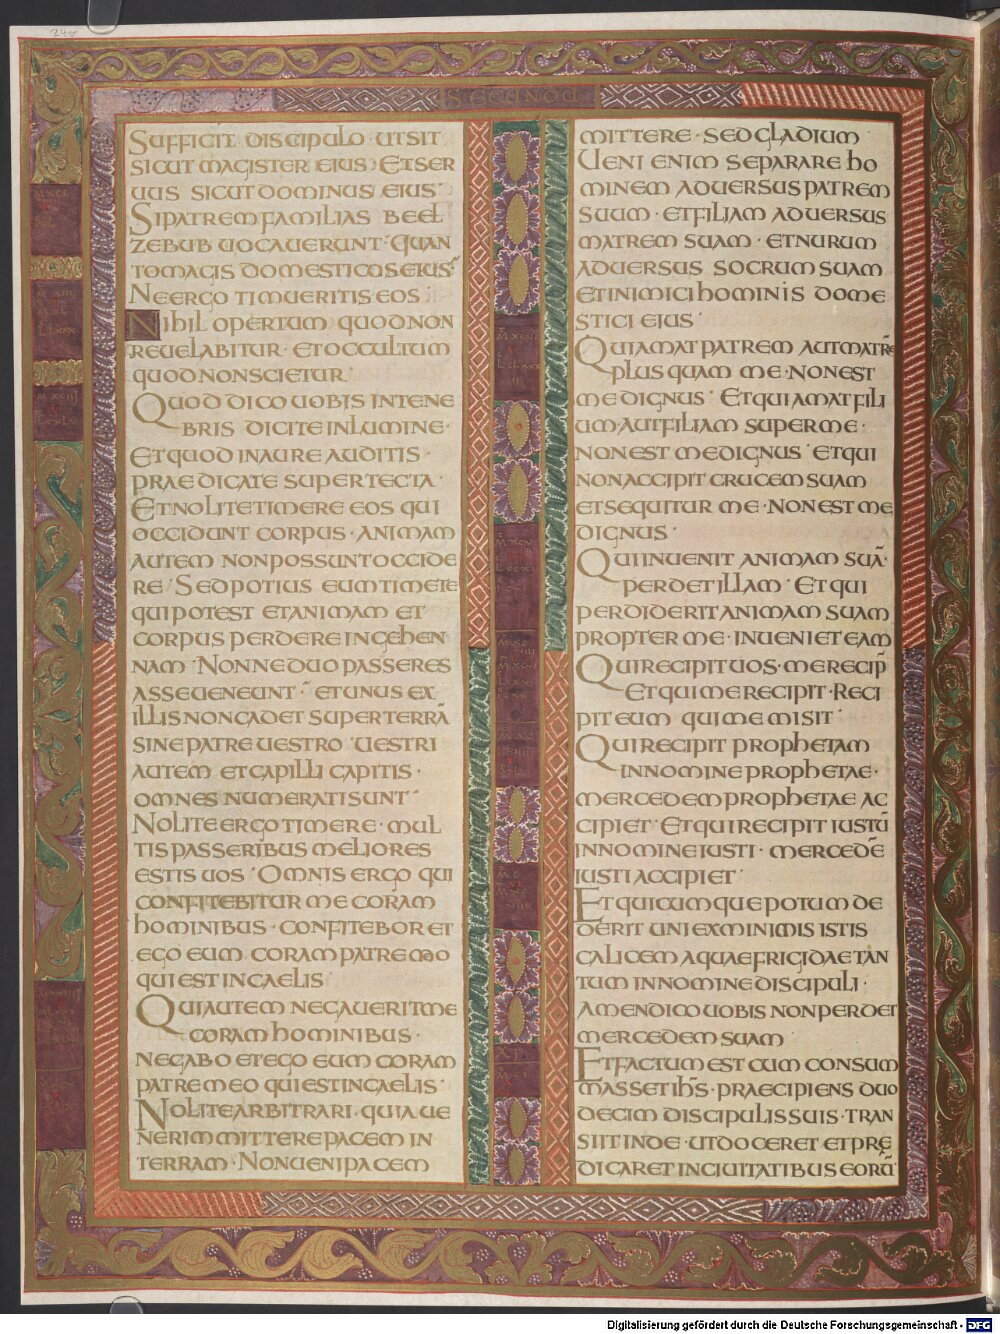 24v
SECUNDU
SUFFICIT DISCIPULO UTSIT
SICUT MAGISTER EIUS ET SER
UUS SICUT DOMINUS EIUS
SI PATREM FAMILIAS BEEL
ZEBUB UOCAUERUNT QUAN
TO MAGIS DOMESTICOS EIUS
NE ERGO TIMUERITIS EOS
NIHIL OPERTUM QUOD NON
REUELABITUR · ET OCCULTUM
QUOD NON SCIETUR
QUOD DICO UOBIS IN TENE
BRIS DICITE IN LUMINE ·
ET QUOD IN AURE AUDITIS ·
PRAEDICATE SUPER TECTA ·
ET NOLITE TIMERE EOS QUI
OCCIDUNT CORPUS · ANIMAM
AUTEM NON POSSUNT OCCIDE
RE SED POTIUS EUM TIMETE
QUI POTEST ET ANIMAM ET
CORPUS PERDERE IN GEHEN
NAM NONNE DUO PASSERES
ASSE UENEUNT · ET UNUS EX
ILLIS NON CADET SUPER TERRĀ
SINE PATRE UESTRO UESTRI
AUTEM ET CAPILLI CAPITIS ·
OMNES NUMERATI SUNT
NOLITE ERGO TIMERE · MUL
TIS PASSERIBUS MELIORES
ESTIS UOS OMNIS ERGO QUI
CONFITEBITUR ME CORAM
HOMINIBUS · CONFITEBOR ET
EGO EUM CORAM PATRE MEO
QUI EST IN CAELIS
QUI AUTEM NEGAUERIT ME
CORAM HOMINIBUS ·
NEGABO ET EGO EUM CORAM
PATRE MEO QUI EST IN CAELIS
NOLITE ARBITRARI · QUIA UE
NERIM MITTERE PACEM IN
TERRAM · NON UENI PACEM
MITTERE · SED GLADIUM
UENI ENIM SEPARARE HO
MINEM ADUERSUS PATREM
SUUM · ET FILIAM ADUERSUS
MATREM SUAM · ET NURUM
ADUERSUS SOCRUM SUAM
ET INIMICI HOMINIS DOME
STICI EIUS
QUI AMAT PATREM AUT MATRĒ
PLUS QUAM ME · NON EST
ME DIGNUS ET QUI AMAT FILI
UM · AUT FILIAM SUPER ME ·
NON EST ME DIGNUS ET QUI
NON ACCIPIT CRUCEM SUAM
ET SEQUITUR ME · NON EST ME
DIGNUS ·
QUI INUENIT ANIMAM SUĀ ·
PERDET ILLAM ET QUI
PERDIDERIT ANIMAM SUAM
PROPTER ME · INUENIET EAM
QUI RECIPIT UOS · ME RECIP̄
ET QUI ME RECIPIT · RECI
PIT EUM QUI ME MISIT
QUI RECIPIT PROPHETAM
IN NOMINE PROPHETAE ·
MERCEDEM PROPHETAE AC
CIPIET ET QUI RECIPIT IUSTŪ
IN NOMINE IUSTI · MERCEDĒ
IUSTI ACCIPIET
ET QUICUMQUE POTUM DE
DERIT UNI EX MINIMIS ISTIS
CALICEM AQUAE FRIGIDAE TAN
TUM IN NOMINE DISCIPULI ·
AMEN DICO UOBIS NON PERDET
MERCEDEM SUAM
ET FACTUM EST CUM CONSUM
MASSET IHS · PRAECIPIENS DUO
DECIM DISCIPULIS SUIS · TRAN
SIIT INDE · UT DOCERET ET PRĘ
DICARET IN CIUITATIBUS EORŪ
Digitalisierung gefördert durch die Deutsche Forschungsgemeinschaft - DFG